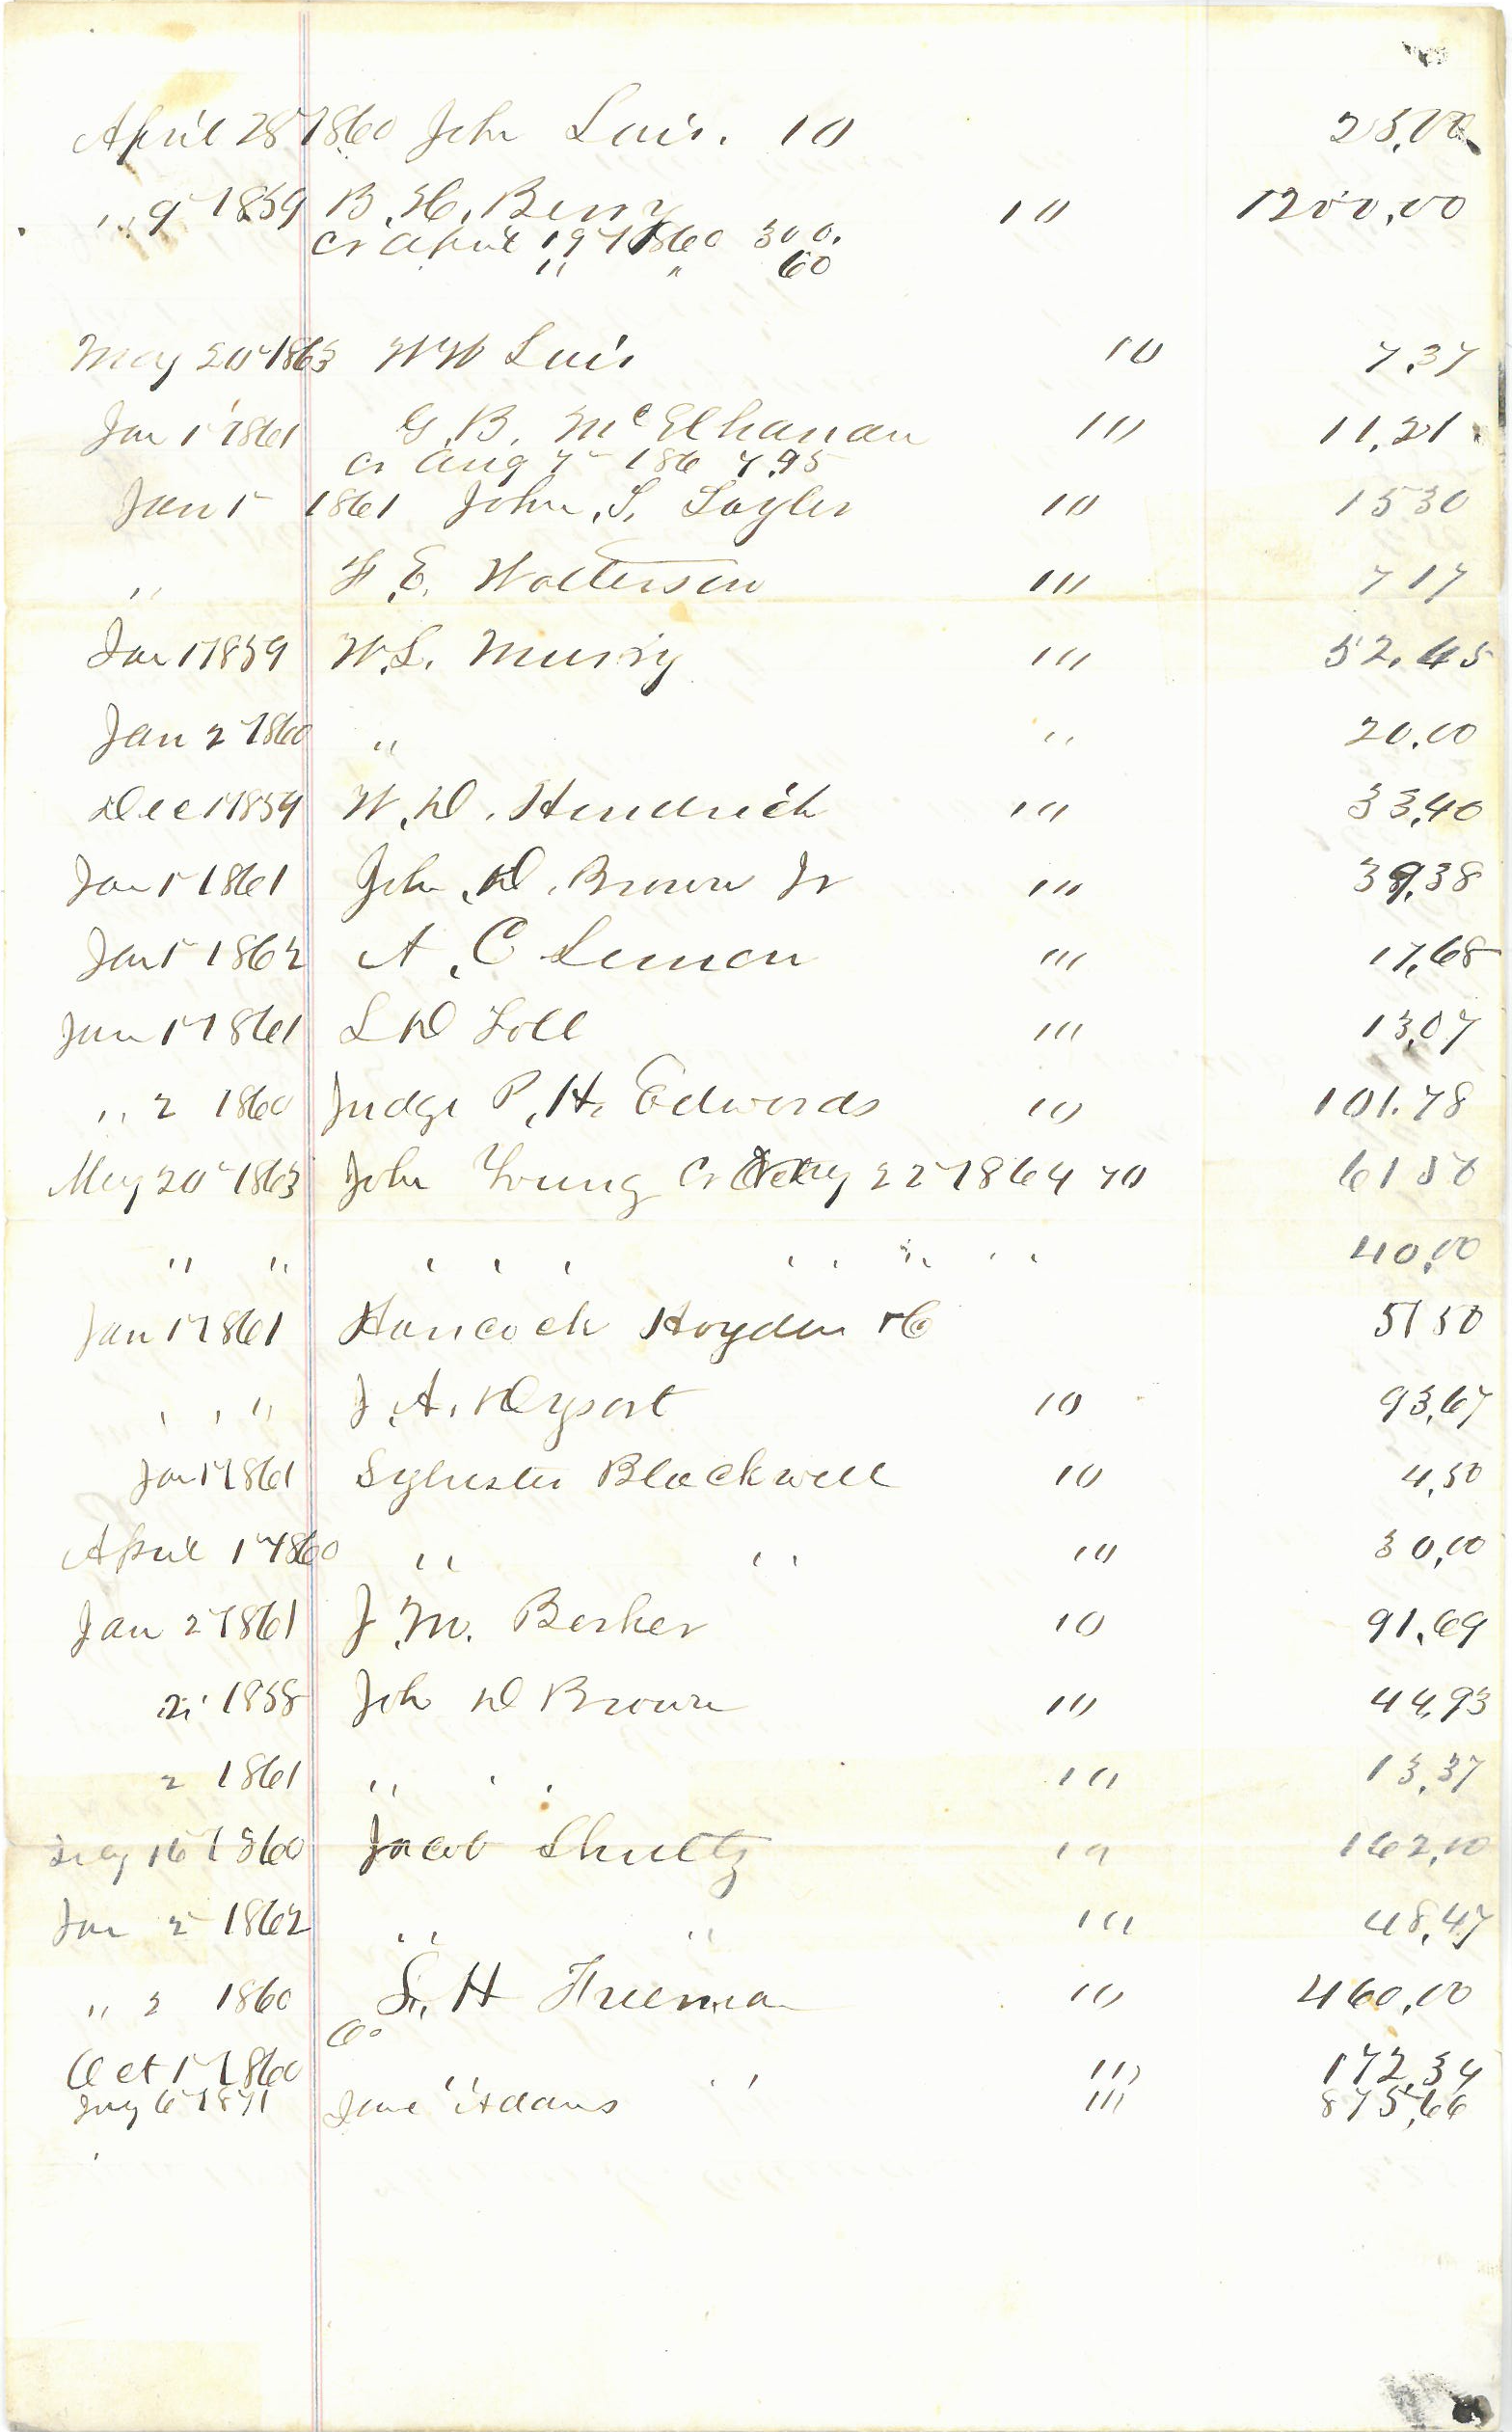 April 28 1860 John Luis. 10 25,00
" 9 1859 B. H. Berry 10 1200,00
Cr April 19 1860 300.
" " 60
May 20 1863 W W Luis 10 7.37
Jan 1 1861 G. B. McElhanan 10 11,21
Cr Aug 7 186 7.95
Jan 1 1861 John. S. Sayler 10 15 30
" E. Watterson 10 7 17
Jan 1 1859 W. L. Murry 10 52.45
Jan 2 1860 " " 20.00
Dec 1 1859 W. D. Hendrick 10 33,40
Jan 1 1861 John. D. Brown Jr 10 39,38
Jan 1 1862 A. C Lemon 10 17,68
Jan 1 1861 L D Toll 10 13,07
" 2 1860 Judge P. H. Edwards 10 101.78
May 20 1863 John Young Cr 22 1864 70 61 50
" " " " " " " " " 40,00
Jan 1 1861 Hancock Hayden & Co 51 50
" " J. A. Dysart 10 93,67
Jan 1 1861 Sylvester Blackwell 10 4,50
April 1 1860 " " 10 30,00
Jan 2 1861 J. M. Barker 10 91.69
2 1858 John D Brown 10 44,93
2 1861 " " " 10 13,37
16 1860 Jacob Shultz 10 162,10
Jan 2 1862 " " 10 48,47
" 2 1860 S. H Freeman 10 460,00
Co
Oct 1 1860 " " 10 172,34
6 1871 Jane Adams 10 875,66